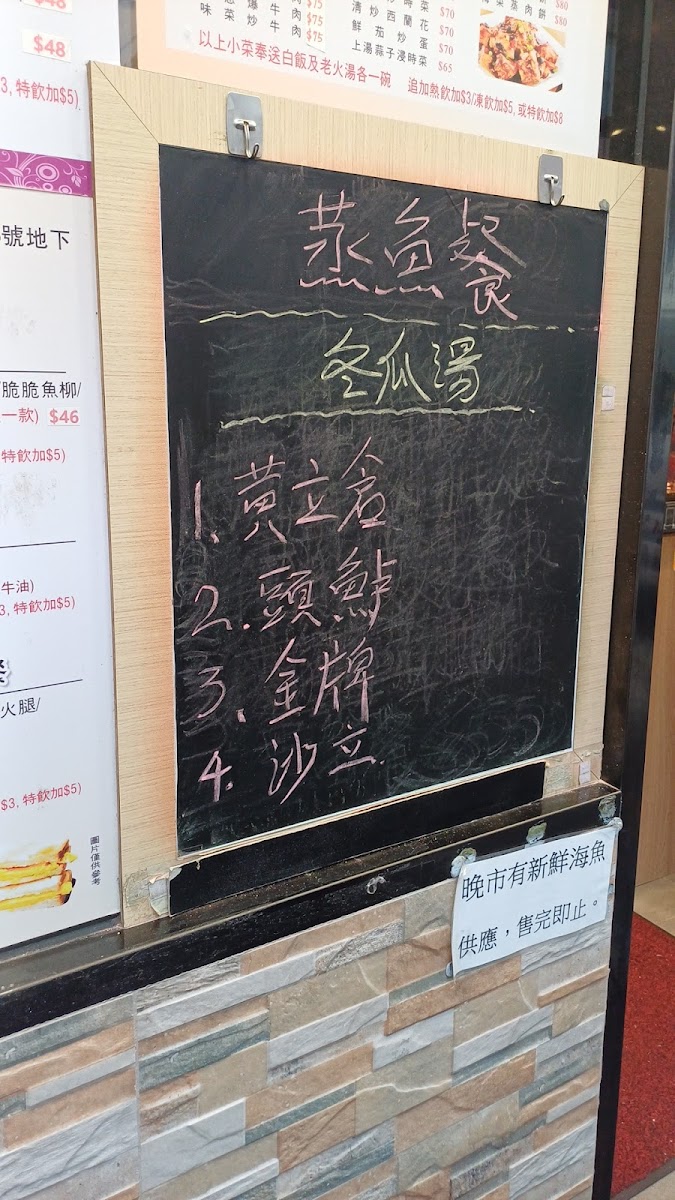 $48
$48
3, 特飲加$5)
號地下
脆脆魚柳/
一款) $46
特飲加$5)
牛油)
3, 特飲加$5)
火腿/
$3, 特飲加$5)
圖片僅供參考
爆牛肉 $75
味菜炒牛肉 $75
時菜 $70
清炒西蘭花 $70
鮮茄炒蛋 $70
上湯蒜子浸時菜 $65
蒸肉餅 $80
$80
以上小菜奉送白飯及老火湯各一碗 追加熱飲加$3/凍飲加$5, 或特飲加$8
蒸魚餐
冬瓜湯
1. 黃立倉
2. 頭鱸
3. 金牌
4. 沙立
晚市有新鮮海魚
供應，售完即止。